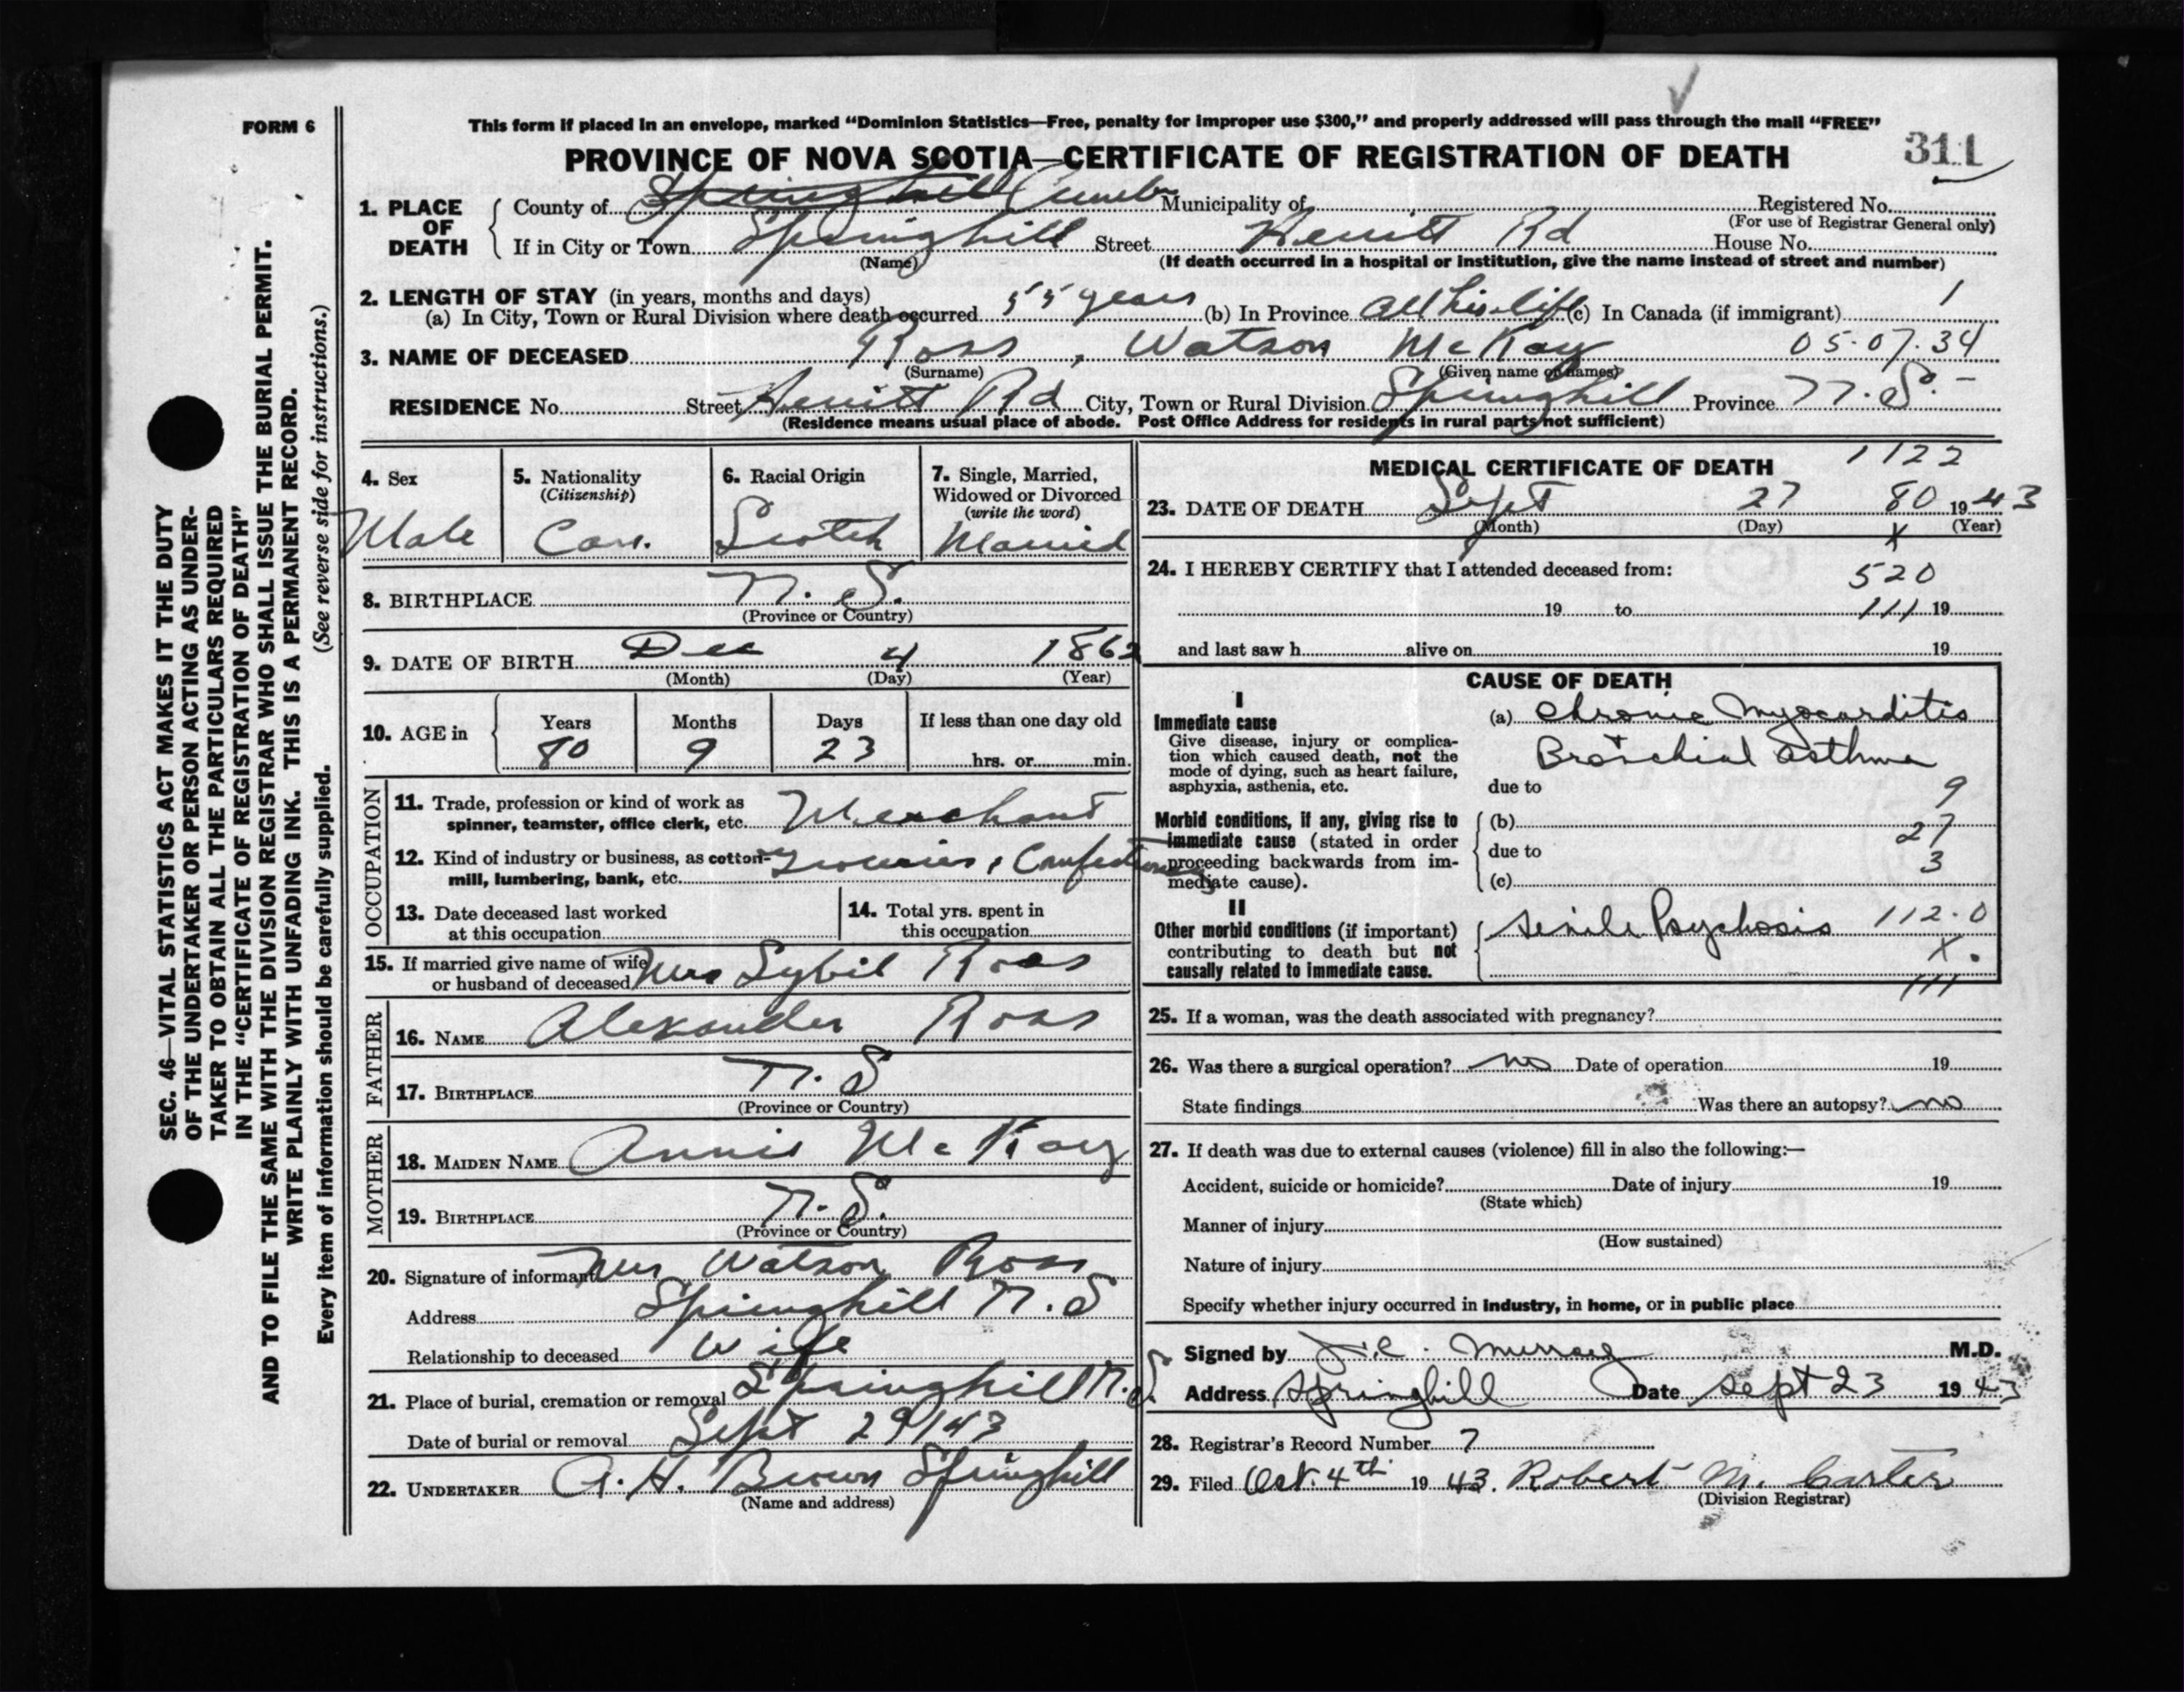 FORM 6
This form if placed in an envelope, marked “Dominion Statistics—Free, penalty for improper use $300,” and properly addressed will pass through the mail “FREE”
PROVINCE OF NOVA SCOTIA—CERTIFICATE OF REGISTRATION OF DEATH
311
1. PLACE OF DEATH
County of Springhill Cumb Municipality of Registered No.
(For use of Registrar General only)
If in City or Town Springhill Street Rd House No.
(Name)
(If death occurred in a hospital or institution, give the name instead of street and number)
2. LENGTH OF STAY (in years, months and days)
(a) In City, Town or Rural Division where death occurred 55 years (b) In Province all his life (c) In Canada (if immigrant) 1
3. NAME OF DECEASED Ross, Watson McKay 05-07-34
(Surname) (Given name or names)
RESIDENCE No. Street Rd City, Town or Rural Division Springhill Province N.S.
(Residence means usual place of abode. Post Office Address for residents in rural parts not sufficient)
4. Sex
Male
5. Nationality
(Citizenship)
Can.
6. Racial Origin
Scotch
7. Single, Married,
Widowed or Divorced
(write the word)
Married
8. BIRTHPLACE N. S.
(Province or Country)
9. DATE OF BIRTH Dec 4 1862
(Month) (Day) (Year)
10. AGE in
Years Months Days If less than one day old
80 9 23 hrs. or min.
OCCUPATION
11. Trade, profession or kind of work as
spinner, teamster, office clerk, etc. Merchant
12. Kind of industry or business, as cotton-
mill, lumbering, bank, etc. Groceries & Confectionery
13. Date deceased last worked
at this occupation
14. Total yrs. spent in
this occupation
15. If married give name of wife
or husband of deceased Mrs Sybil Ross
FATHER
16. NAME Alexander Ross
17. BIRTHPLACE N. S
(Province or Country)
MOTHER
18. MAIDEN NAME Annie McKay
19. BIRTHPLACE N. S.
(Province or Country)
20. Signature of informant Mrs Watson Ross
Address Springhill N. S
Relationship to deceased Wife
21. Place of burial, cremation or removal Springhill N.S.
Date of burial or removal Sept 29/43
22. UNDERTAKER A. H. Brown Springhill
(Name and address)
MEDICAL CERTIFICATE OF DEATH 1122
23. DATE OF DEATH Sept 27 80 1943
(Month) (Day) X (Year)
24. I HEREBY CERTIFY that I attended deceased from: 520
19 to 111 19
and last saw h alive on 19
CAUSE OF DEATH
I
Immediate cause
Give disease, injury or complica-
tion which caused death, not the
mode of dying, such as heart failure,
asphyxia, asthenia, etc.
(a) Chronic Myocarditis
+
Bronchial asthma
due to 9
Morbid conditions, if any, giving rise to
immediate cause (stated in order
proceeding backwards from im-
mediate cause).
(b) 27
due to 3
(c)
II
Other morbid conditions (if important)
contributing to death but not
causally related to immediate cause.
Senile Psychosis 112.0
X.
111
25. If a woman, was the death associated with pregnancy?
26. Was there a surgical operation? no Date of operation 19
State findings Was there an autopsy? no
27. If death was due to external causes (violence) fill in also the following:—
Accident, suicide or homicide? Date of injury 19
(State which)
Manner of injury
(How sustained)
Nature of injury
Specify whether injury occurred in industry, in home, or in public place
Signed by Murray M.D.
Address Springhill Date Sept 23 1943
28. Registrar's Record Number 7
29. Filed Oct. 4th 1943. Robert M. Carter
(Division Registrar)
SEC. 46—VITAL STATISTICS ACT MAKES IT THE DUTY
OF THE UNDERTAKER OR PERSON ACTING AS UNDER-
TAKER TO OBTAIN ALL THE PARTICULARS REQUIRED
IN THE “CERTIFICATE OF REGISTRATION OF DEATH”
AND TO FILE THE SAME WITH THE DIVISION REGISTRAR WHO SHALL ISSUE THE BURIAL PERMIT.
WRITE PLAINLY WITH UNFADING INK. THIS IS A PERMANENT RECORD.
Every item of information should be carefully supplied. (See reverse side for instructions.)